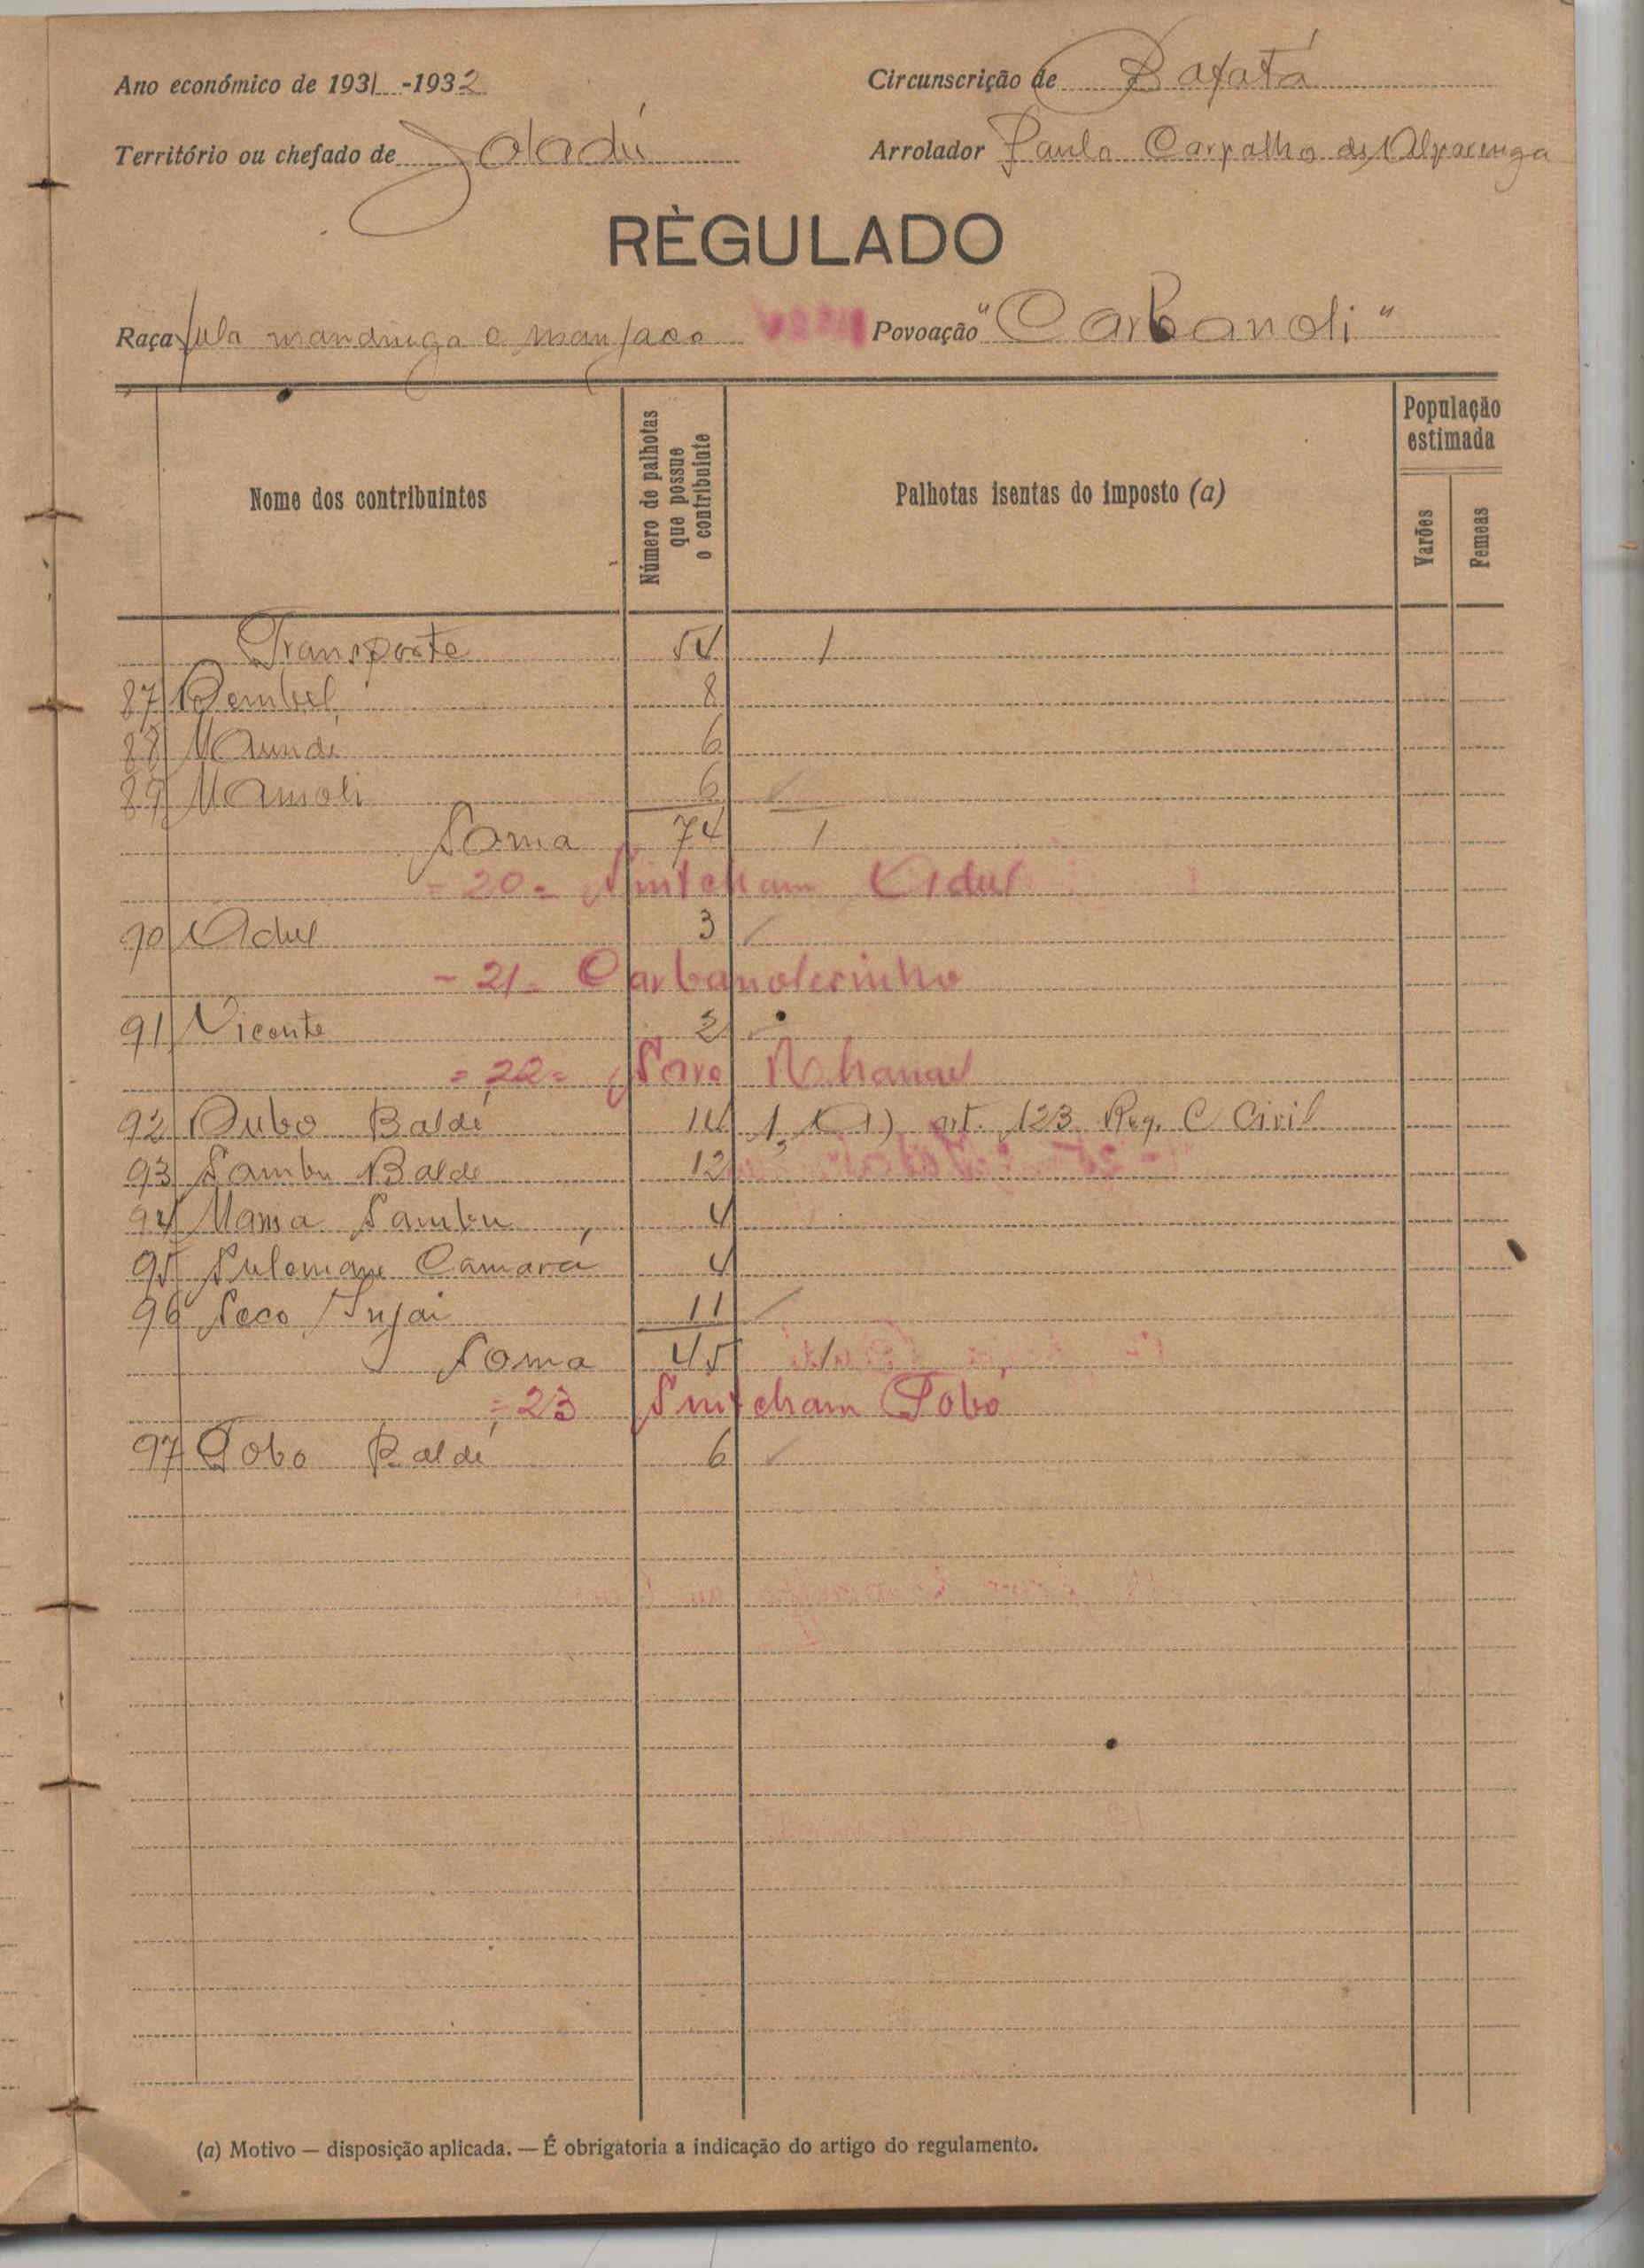 Ano económico de 1931-1932
Circunscrição de Bafatá
Território ou chefado de Joladú
Arrolador Paulo Carvalho de Alvarenga
RÈGULADO
Raça fula mandinga e manjaco
Povoação "Carbanoli"
Nome dos contribuintes
Número de palhotas que possue o contribuinte
Palhotas isentas do imposto (a)
População estimada
Varões
Femeas
Transporte 54 1
87 Dembel 8
88 Maunde 6
89 Mamoli 6
Soma 74 1
= 20 = Sintcham Adul
90 Adul 3
- 21 = Carbanolesinho
91 Vicente 2
= 22 = Sare
92 Dubo Baldé 14 1 (A) art. 123 Reg. C Civil
93 Sambu Balde 12
94 Mama Sambu 4
95 Sulemane Camará 4
96 Seco Injai 11
Soma 45 1
= 23 Sintcham Tobo
97 Tobo Baldé 6
(a) Motivo — disposição aplicada. — É obrigatoria a indicação do artigo do regulamento.